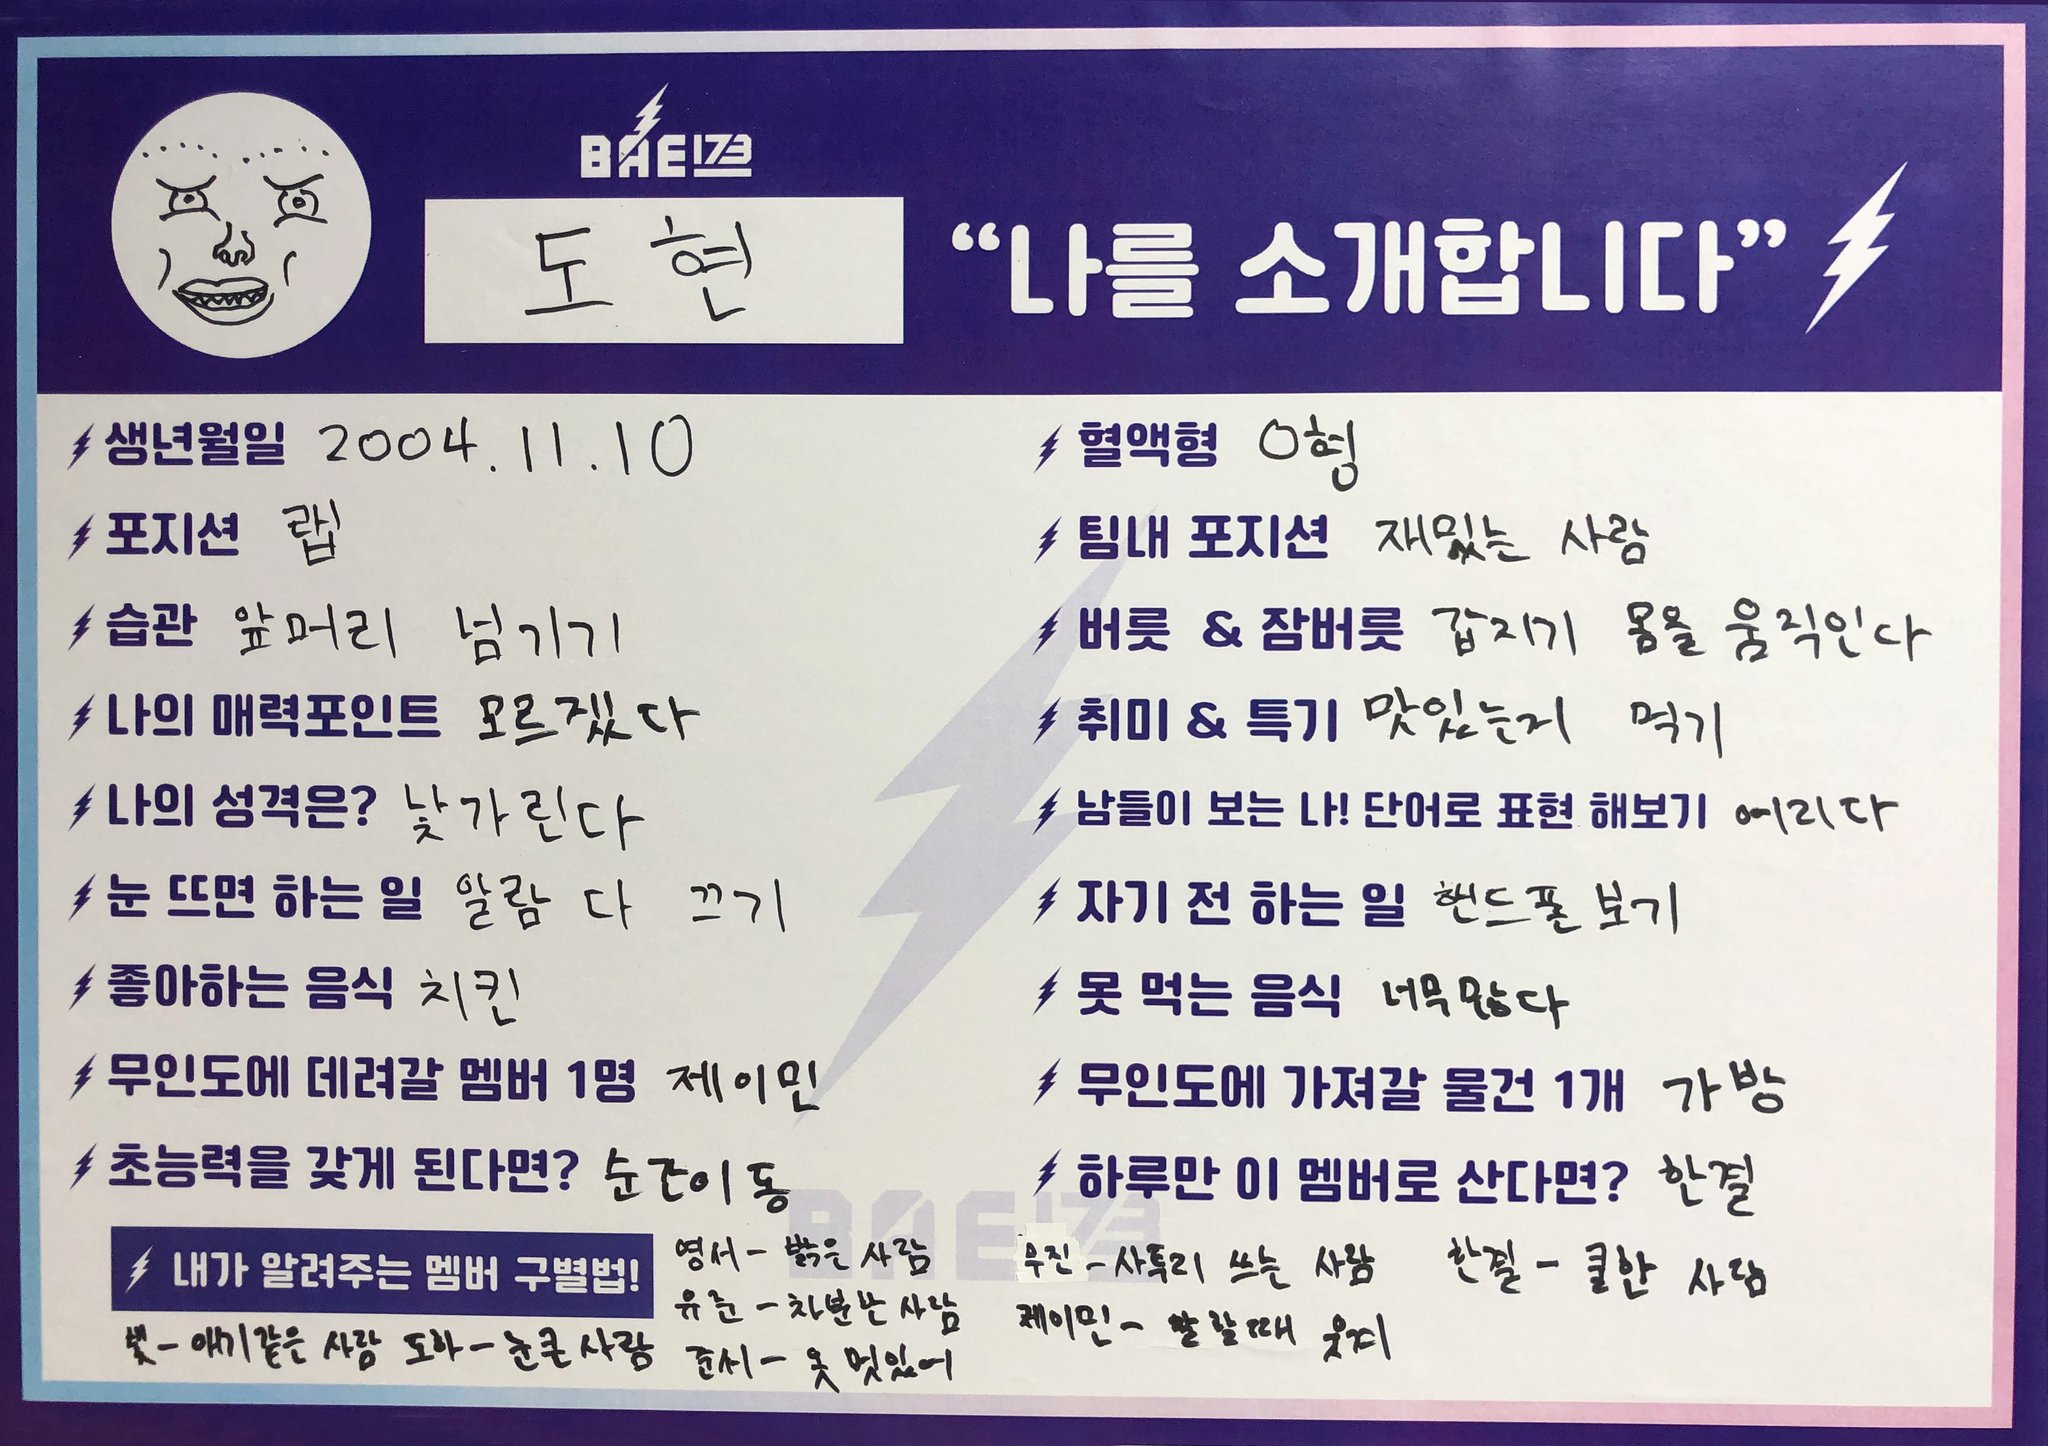 BAE173
도현
“나를 소개합니다”
생년월일 2004.11.10
혈액형 O형
포지션 랩
팀내 포지션 재밌는 사람
습관 앞머리 넘기기
버릇 & 잠버릇 갑자기 몸을 움직인다
나의 매력포인트 모르겠다
취미 & 특기 맛있는거 먹기
나의 성격은? 낯가린다
남들이 보는 나! 단어로 표현 해보기 어리다
눈 뜨면 하는 일 알람 다 끄기
자기 전 하는 일 핸드폰 보기
좋아하는 음식 치킨
못 먹는 음식 너무많다
무인도에 데려갈 멤버 1명 제이민
무인도에 가져갈 물건 1개 가방
초능력을 갖게 된다면? 순간이동
하루만 이 멤버로 산다면? 한결
BAE173
내가 알려주는 멤버 구별법!
영서 - 밝은 사람
무진 - 사투리 쓰는 사람
한결 - 쿨한 사람
유준 - 차분한 사람
제이민 - 말할때 웃겨
빛 - 애기같은 사람
도하 - 눈큰 사람
준서 - 옷 멋있어